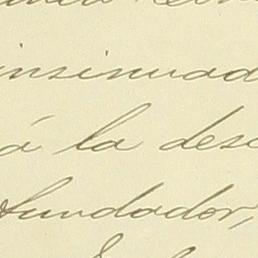 insinuad
á la des
fundador,